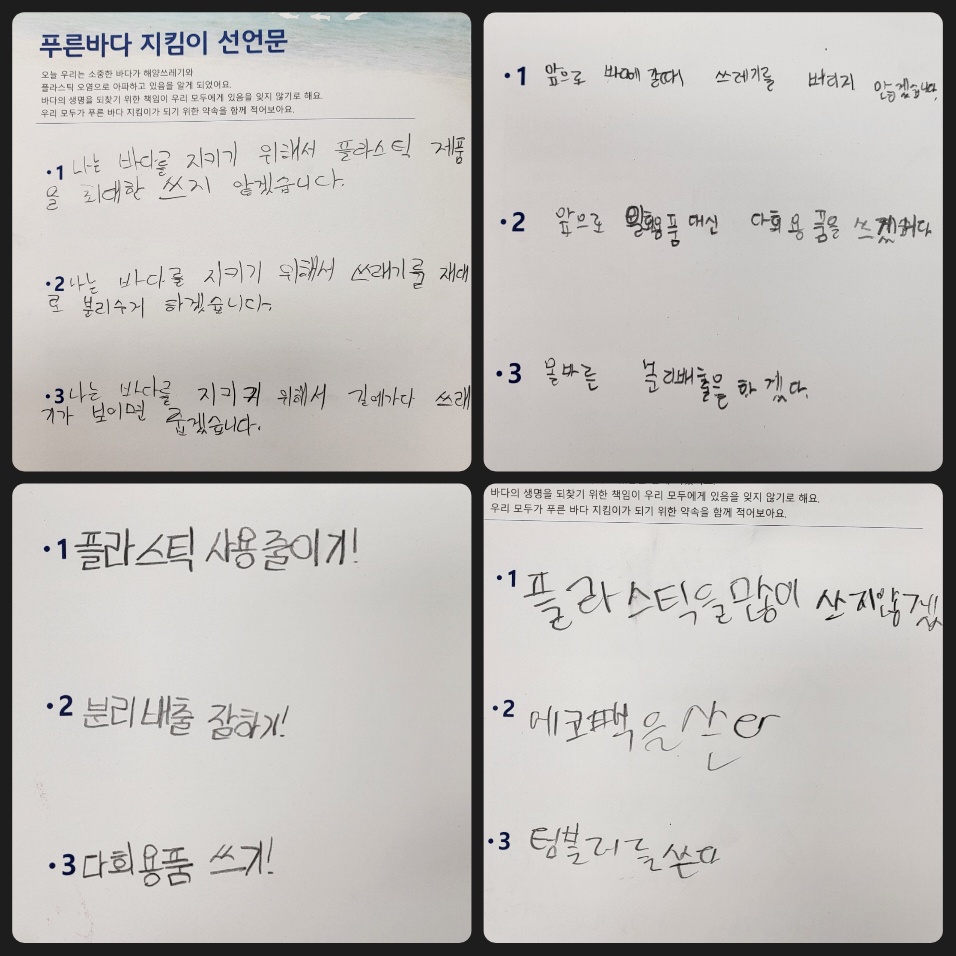 푸른바다 지킴이 선언문
오늘 우리는 소중한 바다가 해양쓰레기와
플라스틱 오염으로 아파하고 있음을 알게 되었어요.
바다의 생명을 되찾기 위한 책임이 우리 모두에게 있음을 잊지 않기로 해요.
우리 모두가 푸른 바다 지킴이가 되기 위한 약속을 함께 적어보아요.
•1 나는 바다를 지키기 위해서 플라스틱 제품
을 최대한 쓰지 않겠습니다.
•2 나는 바다를 지키기 위해서 쓰래기를 재대
로 불리수거 하겠습니다.
•3 나는 바다를 지키기 위해서 길에가다 쓰래
기가 보이면 줍겠습니다.
•1 앞으로 바다에 갈때 쓰레기를 버리지 않겠습니다.
•2 앞으로 일회용품 대신 다회용품을 쓰겠습니다
•3 올바른 분리배출을 하겠다.
•1 플라스틱 사용줄이기!
•2 분리배출 잘하기!
•3 다회용품 쓰기!
바다의 생명을 되찾기 위한 책임이 우리 모두에게 있음을 잊지 않기로 해요.
우리 모두가 푸른 바다 지킴이가 되기 위한 약속을 함께 적어보아요.
•1 플라스틱을 많이 쓰지않겠
•2 에코백을 쓴다
•3 텀블러를 쓴다